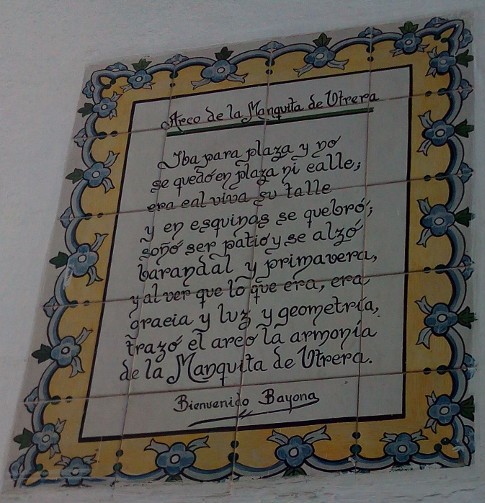 Arco de la Manquita de Utrera
Iba para plaza y no
se quedó en plaza ni calle;
era cal viva su talle
y en esquinas se quebró;
soñó ser patio y se alzó
barandal y primavera,
y al ver que lo que era, era
gracia y luz y geometría,
trazó el arco la armonía
de la Manquita de Utrera.
Bienvenido Bayona